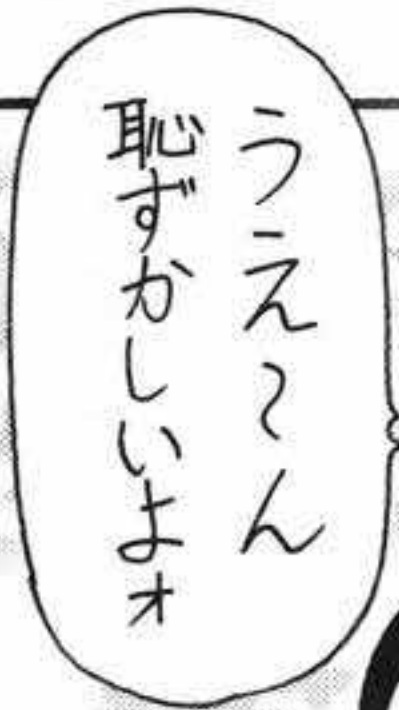 うえ〜ん
恥ずかしいよォ